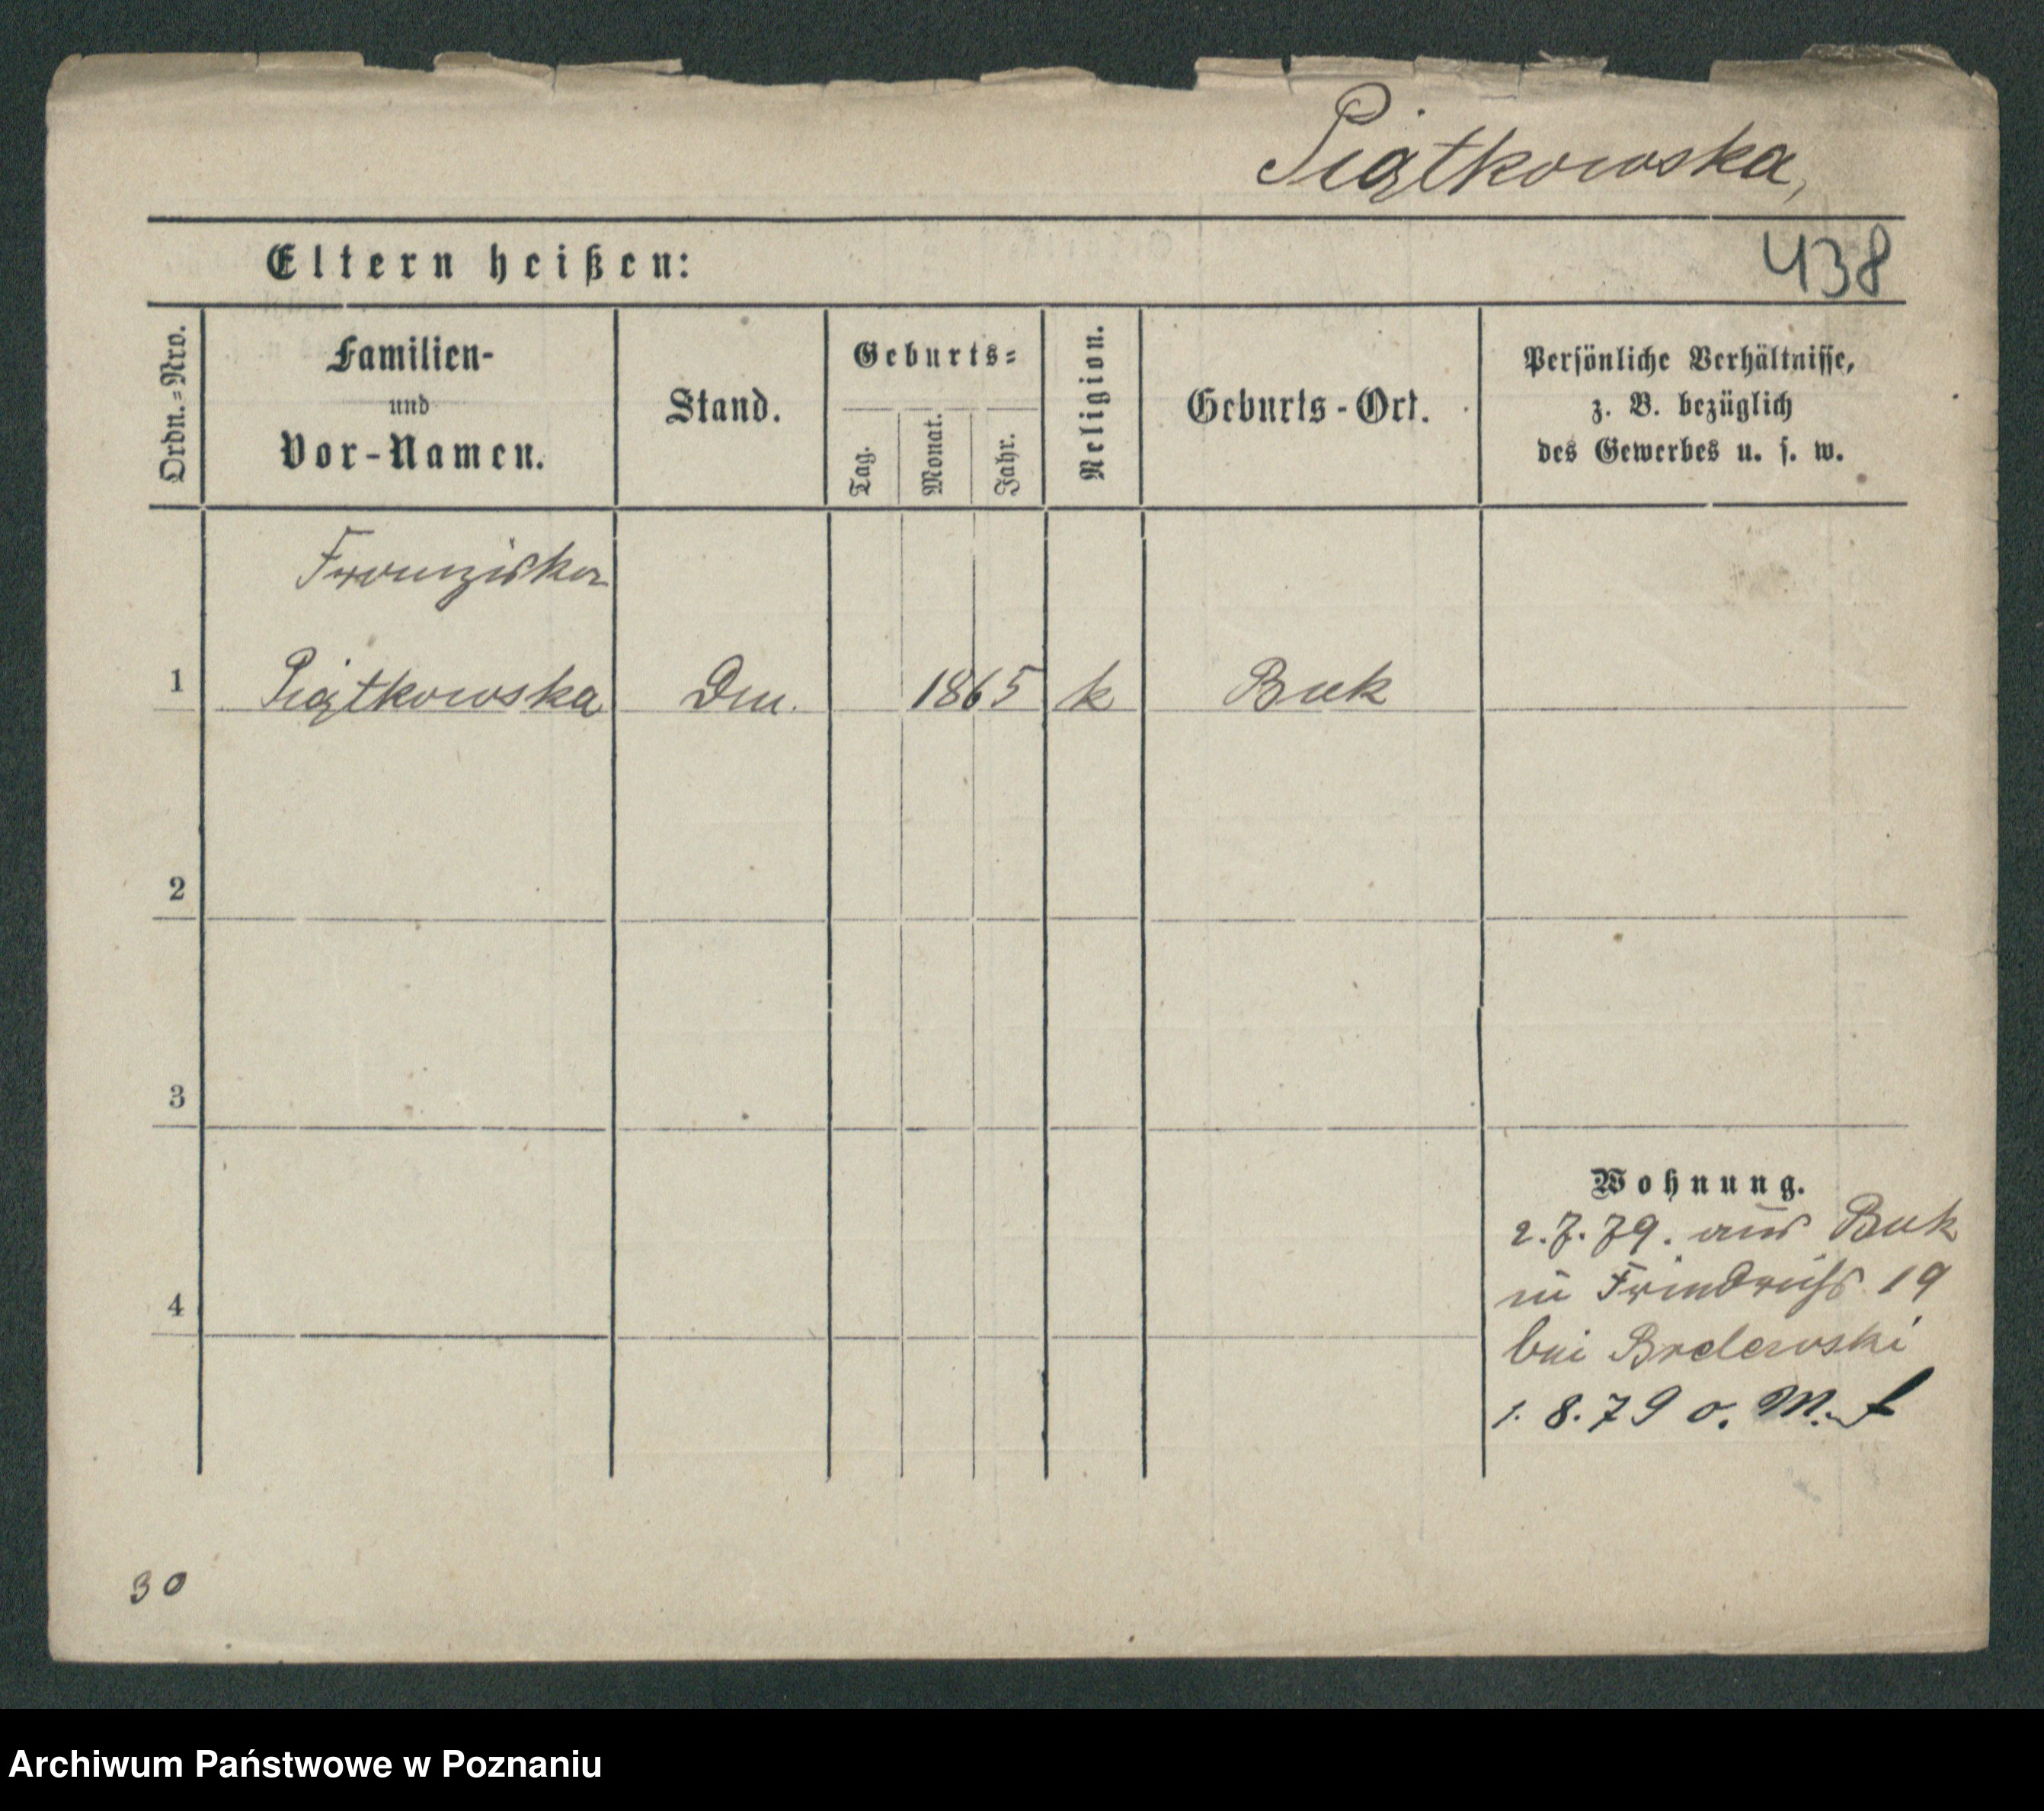 Piątkowska,
Eltern heißen:
438
Ordn.=Nro.
Familien-
und
Vor-Namen.
Stand.
Geburts=
Tag.
Monat.
Jahr.
Religion.
Geburts-Ort.
Persönliche Verhältnisse,
z. B. bezüglich
des Gewerbes u. s. w.
Franziska
1 Piątkowska 1865 k Buk
2
3
Wohnung.
2.7.79. aus Buk
in 19
4
bei
1.8.79 o. M.
30
Archiwum Państwowe w Poznaniu